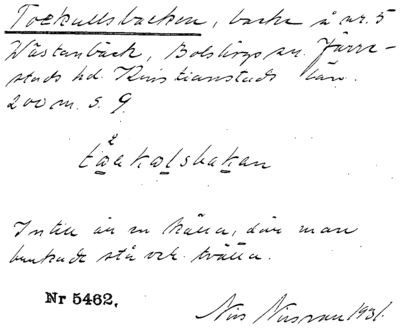 Toekullsbacken, backe å nr. 5
Västanbäck, Bolshögs sn. Järre-
stads hd. Kristianstads län.
200 m. S. G.
tǫ²ekǫlsbakan
Intill är en källa, där man
brukade stå och tvätta.
Nr 5462.
Nils 1931.